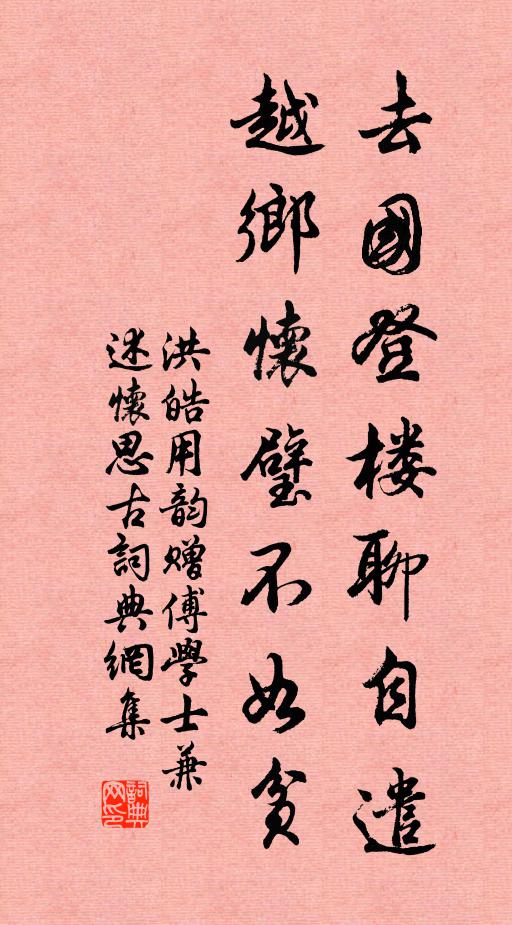 去國登楼聊自遣
越鄉懷璧不如貧
洪皓用韵赠傅學士兼
述懷思古詞典網集
詞典网印